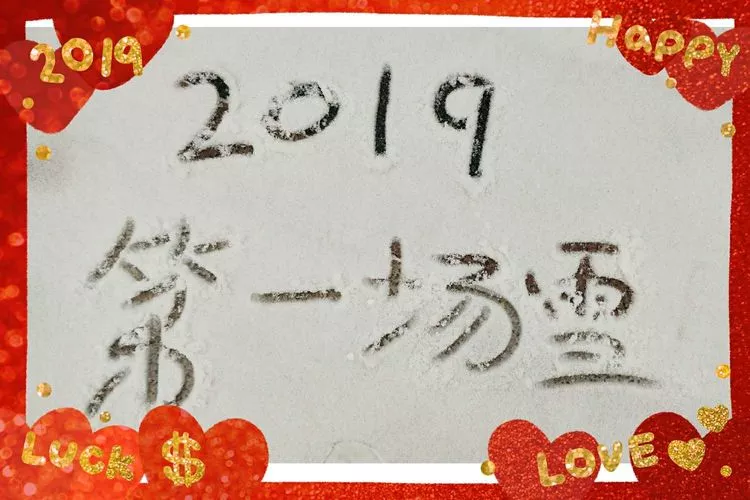 2019
HAPPY
2019
第一场雪
LUCK $
LOVE